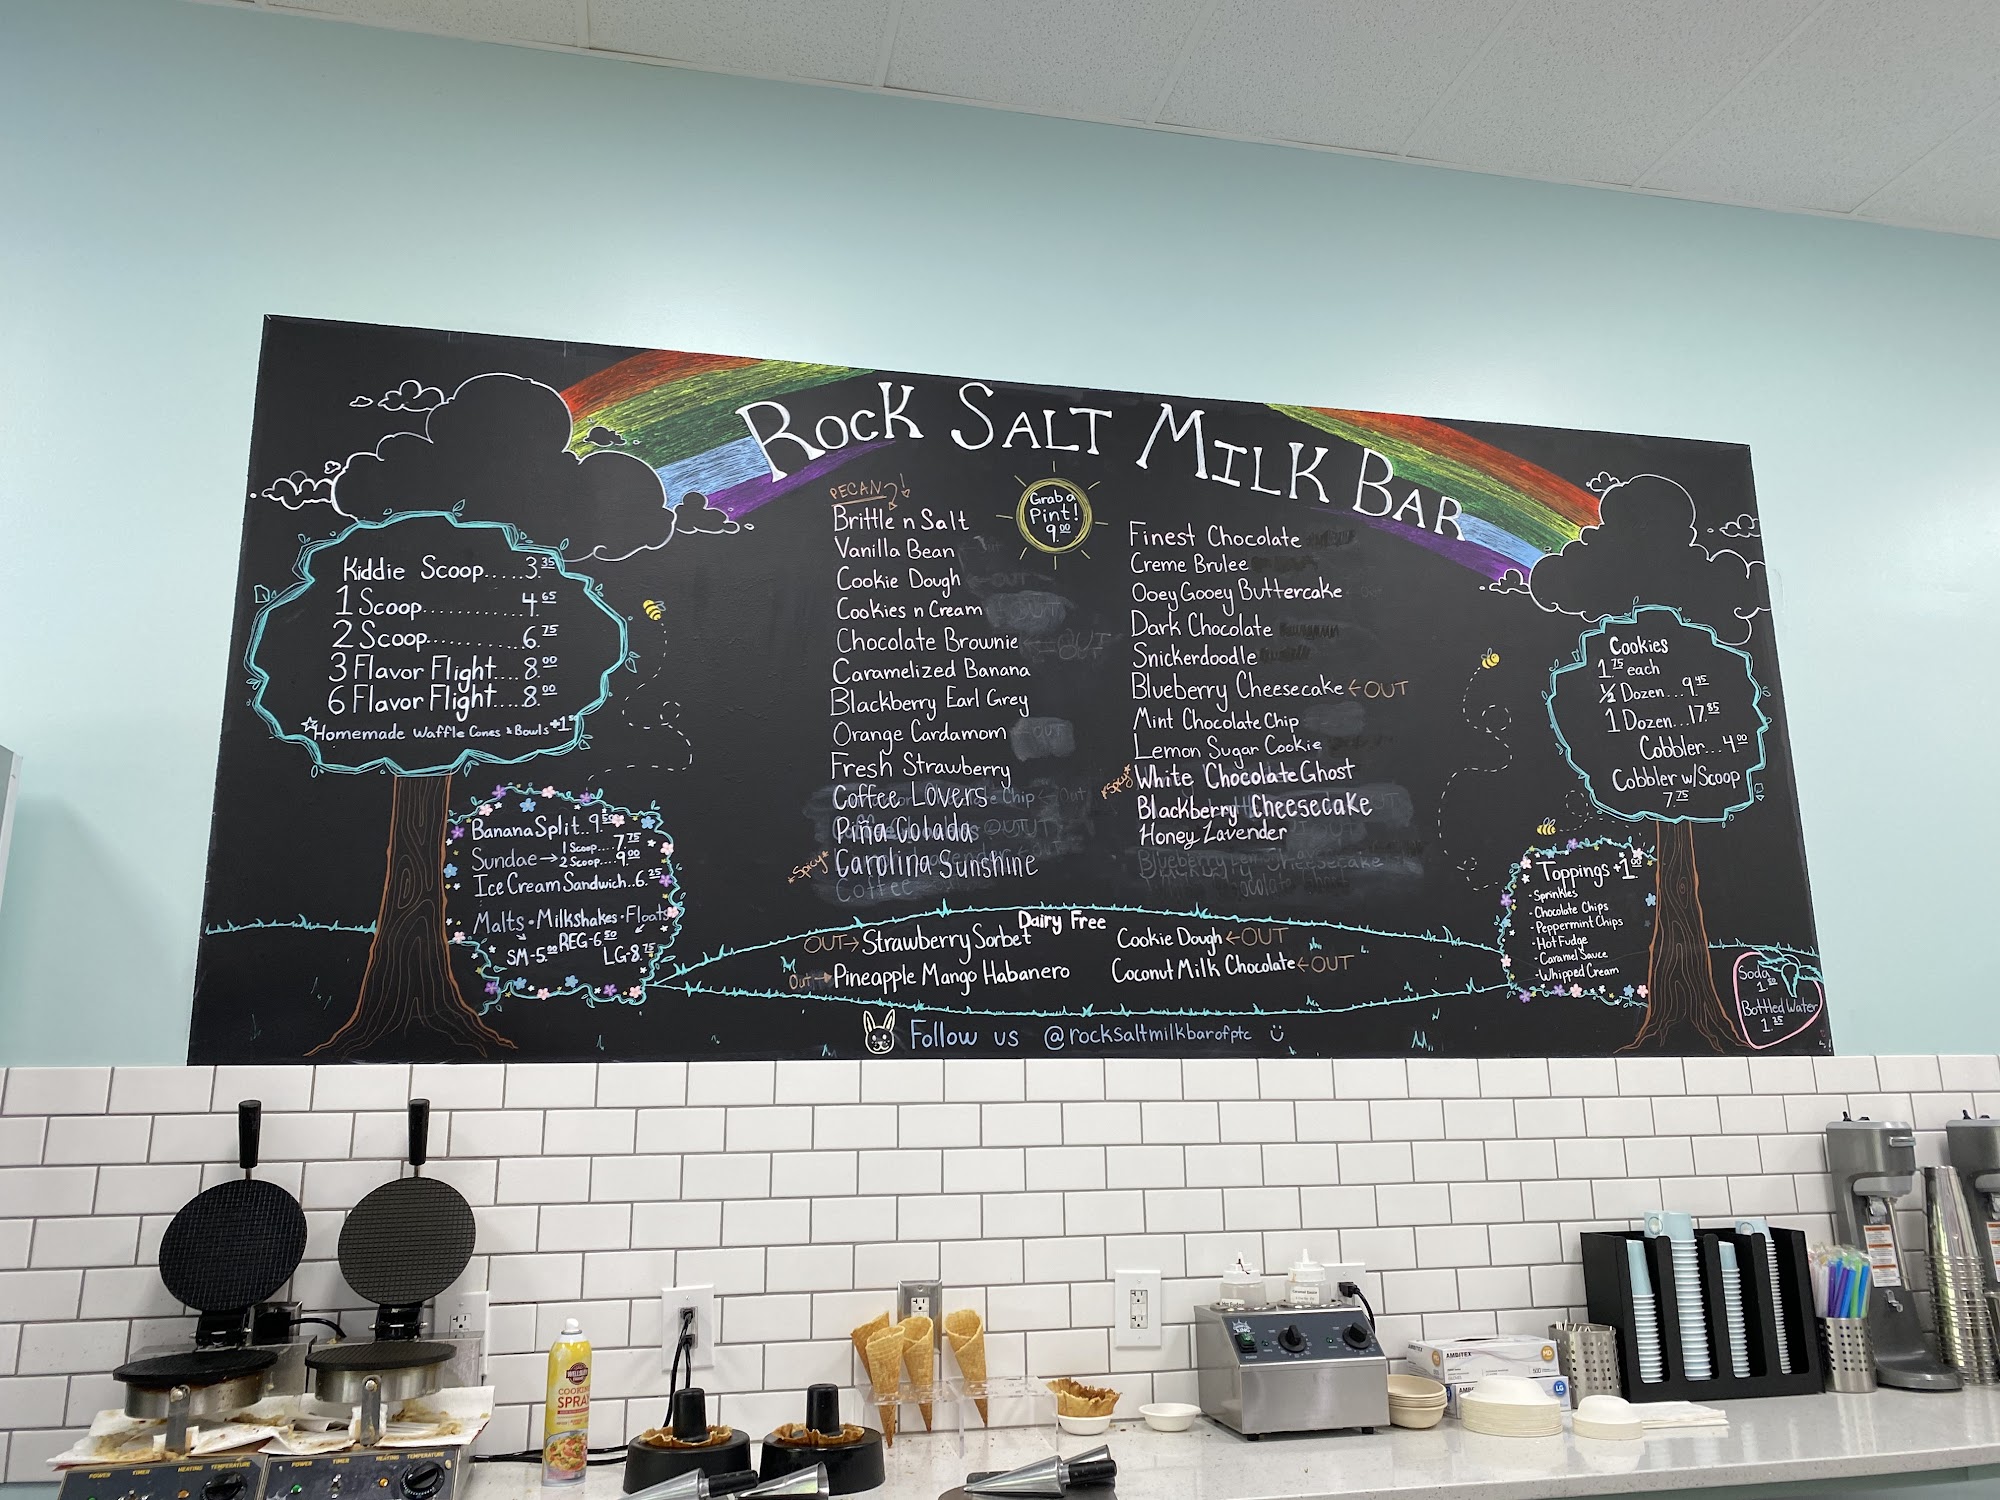 ROCK SALT MILK BAR
Kiddie Scoop.....3.35
1 Scoop..........4.65
2 Scoop..........6.75
3 Flavor Flight....8.00
6 Flavor Flight....8.00
Homemade Waffle Cones & Bowls +1
Banana Split..9.50
Sundae → 1 Scoop....7.75
2 Scoop....9.00
Ice Cream Sandwich..6.25
Malts • Milkshakes • Floats
SM-5.00 REG-6.50 LG-8.75
PECAN
Brittle n Salt
Vanilla Bean
Cookie Dough
Cookies n Cream
Chocolate Brownie
Caramelized Banana
Blackberry Earl Grey
Orange Cardamom
Fresh Strawberry
Coffee Lovers
Piña Colada
*Spicy* Carolina Sunshine
Coffee
Grab a
Pint!
9.00
Finest Chocolate
Creme Brulee
Ooey Gooey Buttercake
Dark Chocolate
Snickerdoodle
Blueberry Cheesecake ← OUT
Mint Chocolate Chip
Lemon Sugar Cookie
*Spicy* White Chocolate Ghost
Blackberry Cheesecake
Honey Lavender
Dairy Free
OUT → Strawberry Sorbet
Out → Pineapple Mango Habanero
Cookie Dough ← OUT
Coconut Milk Chocolate ← OUT
Follow us @rocksaltmilkbarofptc
Cookies
1.75 each
½ Dozen...9.45
1 Dozen...17.85
Cobbler...4.00
Cobbler w/Scoop
7.75
Toppings +1.00
-Sprinkles
-Chocolate Chips
-Peppermint Chips
-Hot Fudge
-Caramel Sauce
-Whipped Cream
Soda
Bottled Water
1.25
COOKING
SPRAY
AMBITEX
POWER TIMER HEATING TEMPERATURE
POWER TIMER HEATING TEMPERATURE